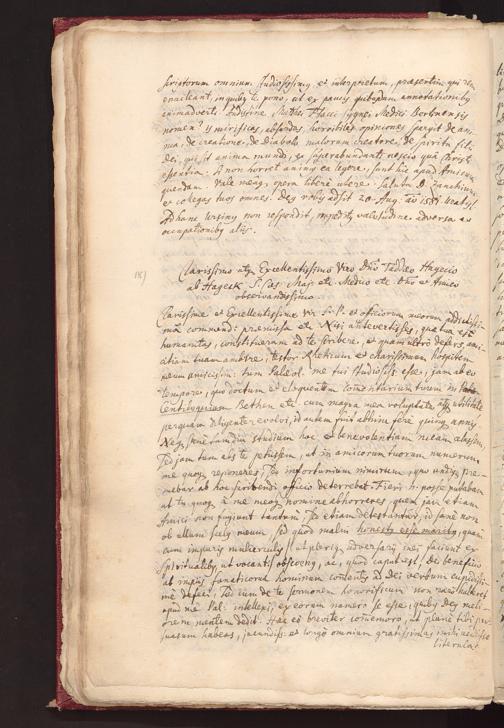 scriptorum omnium studiosissimus et interpretum, praesertim qui rem
enucleant, in quibus te pono, ut ex paucis quibusdam annotationibus
animadverti. Audistine, Matthiae Flacci Medici Berlinensis
nomen? Is mirificas, absurdas, horribiles opiniones spargit de ani-
ma, de creatione, de Diabolo malorum creatore, de spiritu filii
dei, qui sit anima mundi, ex superabundanti nescio qua Christi
A non horret animus ea legere, sunt hic apud Amicum
quendam. Vale meus, opera libere utere. Saluta D.
et collegas tuos omnes. Deus vobis adsit 20 Aug. a
Adhanc non respondit, impeditus valetudine adversa ac
occupationibus aliis.
Clarissimo atque Excellentissimo Viro Dno Taddaeo Hagecio
ab Hageck S. Caes. Maj. etc Medico etc Dno et Amico
observandissimo
Clarissime et Excellentissime vir S. P. et officiorum meorum addictissi-
mam commend: praemissa etc Nisi antevertisses, quae tua est
humanitas, constitueram ad te scribere, et quam ultro defers, ami-
citiam tuam ambire, testor Rheticum et charissimum hospitem
meum tum Paleol. me tui studiosum esse, jam ab eo
tempore, quo doctum et eloquentem Comentarium tuum in
Bethem etc. cum magna mea voluptate atque utilitate
perquam diligenter evolvi, id autem fuit abhinc fere quinque annis
Neque pene tamdiu studium hoc et benevolentiam meam
Sed jam tum abs te petissem, ut in amicorum tuorum numerum
me quoque reponeres, sed infortunium nimirum, quo undique pre-
mebar ab hoc scribendi officio deterrebat. Fieri n. posse putabam
ut tu quoque a me meoque nomine abhorreres quem jam etiam
Amici non fugiunt tantum, sed etiam detestantur, id sane non
ob ullum scelus meum, sed quod malui honesta esse maritus, quam
cum impuris mulierculis, ut plerique adversarii mei faciunt ex
Spiritualibus, ut vocant, obscoenus, ac, quod caput est, Dei beneficio
ab impiis fanaticorum hominum contentis ad Dei verbum
me Sed cum de te sermonem honorificum non raro haberet
apud me Pal: intellexi, ex eorum numero te esse, quibus Deus meli-
orem mentem dedit. Haec eo breviter commemoro, ut plane tibi per-
suasum habeas, jucundiss: et longe omnium gratissimas mihi
literas